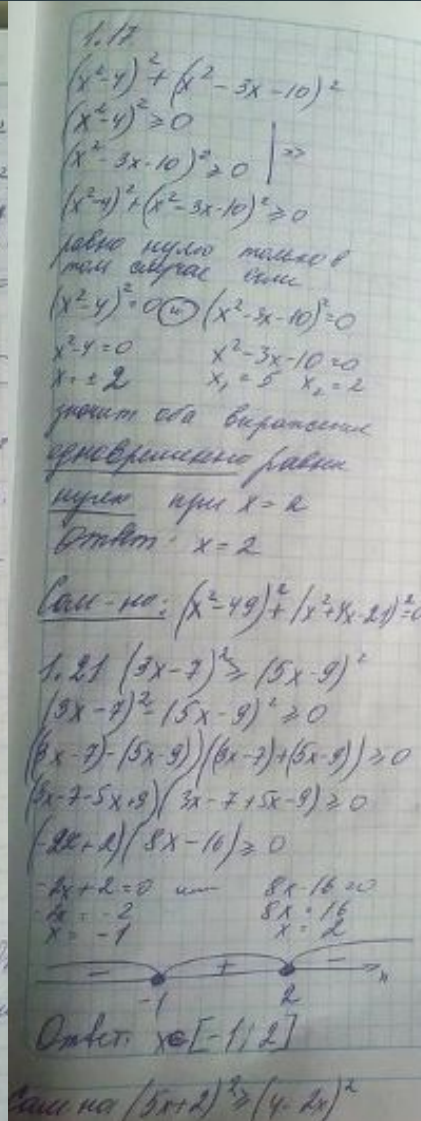 1.17
(x²-4)² + (x² - 3x - 10)²
(x²-4)² ≥ 0
(x² - 3x - 10)² ≥ 0 | =>
(x²-4)² + (x² - 3x - 10)² ≥ 0
равно нулю только в
том случае если
(x²-4)² = 0 и (x² - 3x - 10)² = 0
x² - 4 = 0 x² - 3x - 10 = 0
x = ± 2 x₁ = 5 x₂ = 2
значит оба выражения
одновременно равны
нулю при x = 2
Ответ: x = 2
Сам-но: (x² - 49)² + (x² + 4x - 21)² = 0
1.21 (3x - 7)² ≥ (5x - 9)²
(3x - 7)² - (5x - 9)² ≥ 0
(3x - 7) - (5x - 9))((3x - 7) + (5x - 9)) ≥ 0
(3x - 7 - 5x + 9)(3x - 7 + 5x - 9) ≥ 0
(-2x + 2)(8x - 16) ≥ 0
-2x + 2 = 0 или 8x - 16 = 0
-2x = -2 8x = 16
x = -1 x = 2
- + -
-1 2
Ответ: x ∈ [-1; 2]
Сам-но (5x + 2)² ≥ (4 - 2x)²